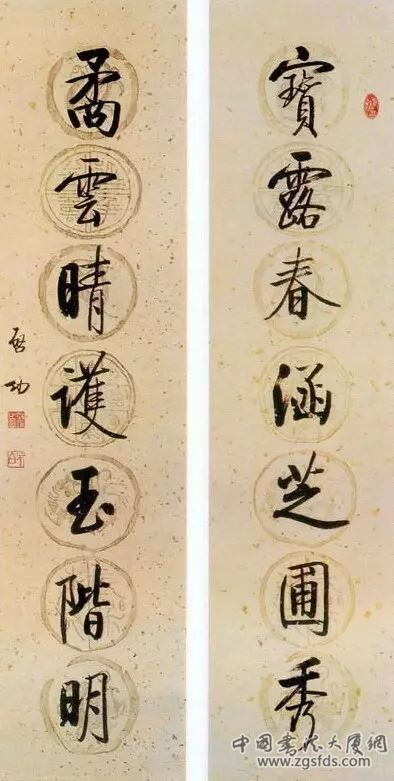 寶露春涵芝圃秀
矞雲晴護玉階明
启功
中国书法大厦網
www.zgsfds.com